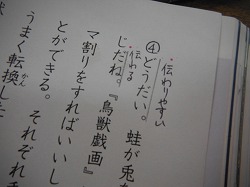 ④伝わりやすい
どうだい。 蛙が兎
伝わる
じだね。『鳥獣戯画』
マ割りをすればいいし
とができる。それぞれ
かん
うまく転換し